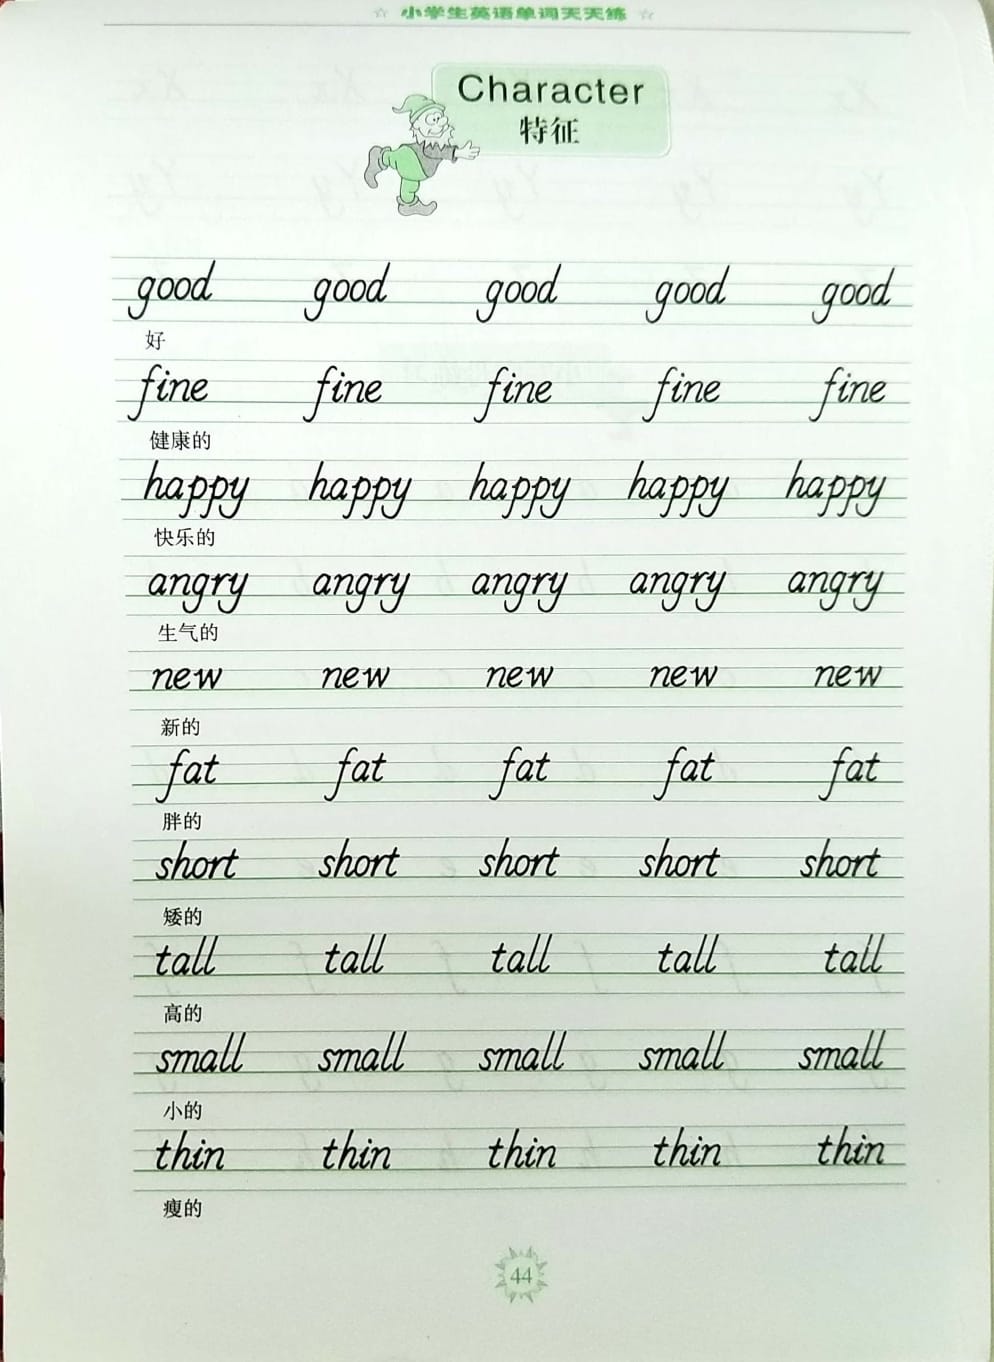 ☆ 小学生英语单词天天练 ☆
Character
特征
good good good good good
好
fine fine fine fine fine
健康的
happy happy happy happy happy
快乐的
angry angry angry angry angry
生气的
new new new new new
新的
fat fat fat fat fat
胖的
short short short short short
矮的
tall tall tall tall tall
高的
small small small small small
小的
thin thin thin thin thin
瘦的
44